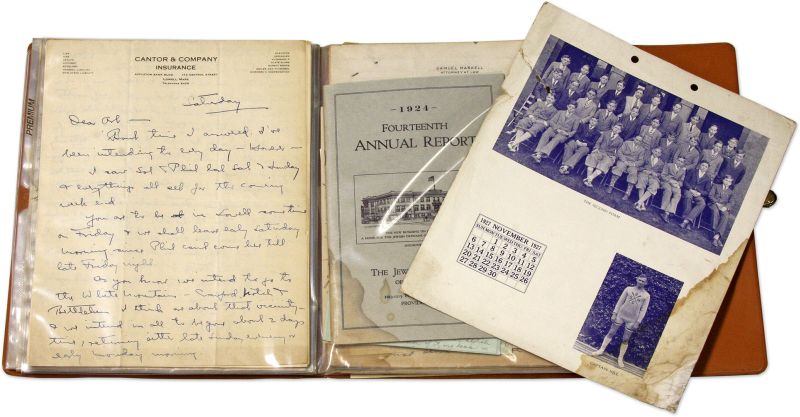 PREMIUM
CANTOR & COMPANY
INSURANCE
APPLETON BANK BLDG 174 CENTRAL STREET
LOWELL MASS
Saturday
Dear Arb —
About time I answered. I've
been intending to every day — However —
I saw Sol & Phil last Sat & Sunday
& everything's all set for the coming
week end
You are to be at in Lowell sometime
on Friday & we shall leave early Saturday
morning since Phil can't come here till
late Friday night.
As you know we intend to go to
the White Mountains — Hotel
Bethlehem I think or about that vicinity —
& we intend in all to be gone about 2 days
time, returning either late Sunday evening or
early Monday morning
SAMUEL MARKELL
ATTORNEY AT LAW
— 1924 —
FOURTEENTH
ANNUAL REPORT
THE JEW
OF
PROVI
THE SECOND FORM
1927 NOVEMBER 1927
SUN MON TUE WED THU FRI SAT
1 2 3 4 5
6 7 8 9 10 11 12
13 14 15 16 17 18 19
20 21 22 23 24 25 26
27 28 29 30
CAPTAIN